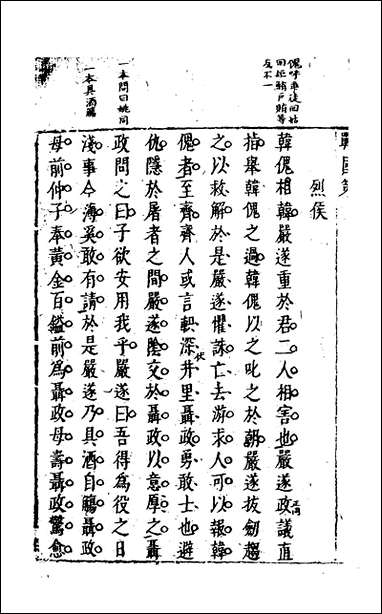 傀呼乖徒回姑
回板鮪戶賄等
反不一
一本問曰姚同
一本具酒觴
戰國策
烈侯
韓傀相韓嚴遂重於君二人相害也嚴遂政議直
指舉韓傀之過韓傀以之叱之於朝嚴遂拔劍趨
之以救解於是嚴遂懼誅亡去游求人可以報韓
傀者至齊齊人或言軹深井里聶政勇敢士也避
仇隱於屠者之間嚴遂陰交於聶政以意厚之聶
政問之曰子欲安用我乎嚴遂曰吾得為役之日
淺事今薄奚敢有請於是嚴遂乃具酒自觴聶政
母前仲子奉黃金百鎰前為聶政母壽聶政驚愈